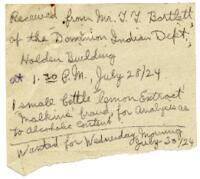 Received from Mr. T. T. Bartlett
of the Dominion Indian Dept,
Holden Building
at 1.30 P.M., July 28/24
1 small bottle lemon Extract
"Malkins" brand, for Analysis as
to alcoholic content.
Wanted for Wednesday Morning
July 30/24